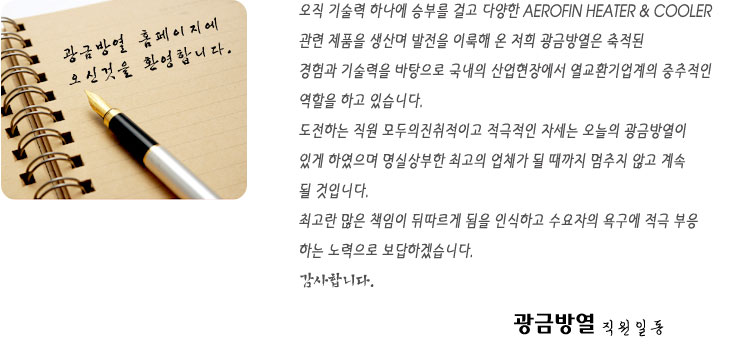 광금방열 홈페이지에
오신것을 환영합니다.
오직 기술력 하나에 승부를 걸고 다양한 AEROFIN HEATER & COOLER
관련 제품을 생산며 발전을 이룩해 온 저희 광금방열은 축적된
경험과 기술력을 바탕으로 국내의 산업현장에서 열교환기업계의 중추적인
역할을 하고 있습니다.
도전하는 직원 모두의진취적이고 적극적인 자세는 오늘의 광금방열이
있게 하였으며 명실상부한 최고의 업체가 될 때까지 멈추지 않고 계속
될 것입니다.
최고란 많은 책임이 뒤따르게 됨을 인식하고 수요자의 욕구에 적극 부응
하는 노력으로 보답하겠습니다.
감사합니다.
광금방열 직원일동